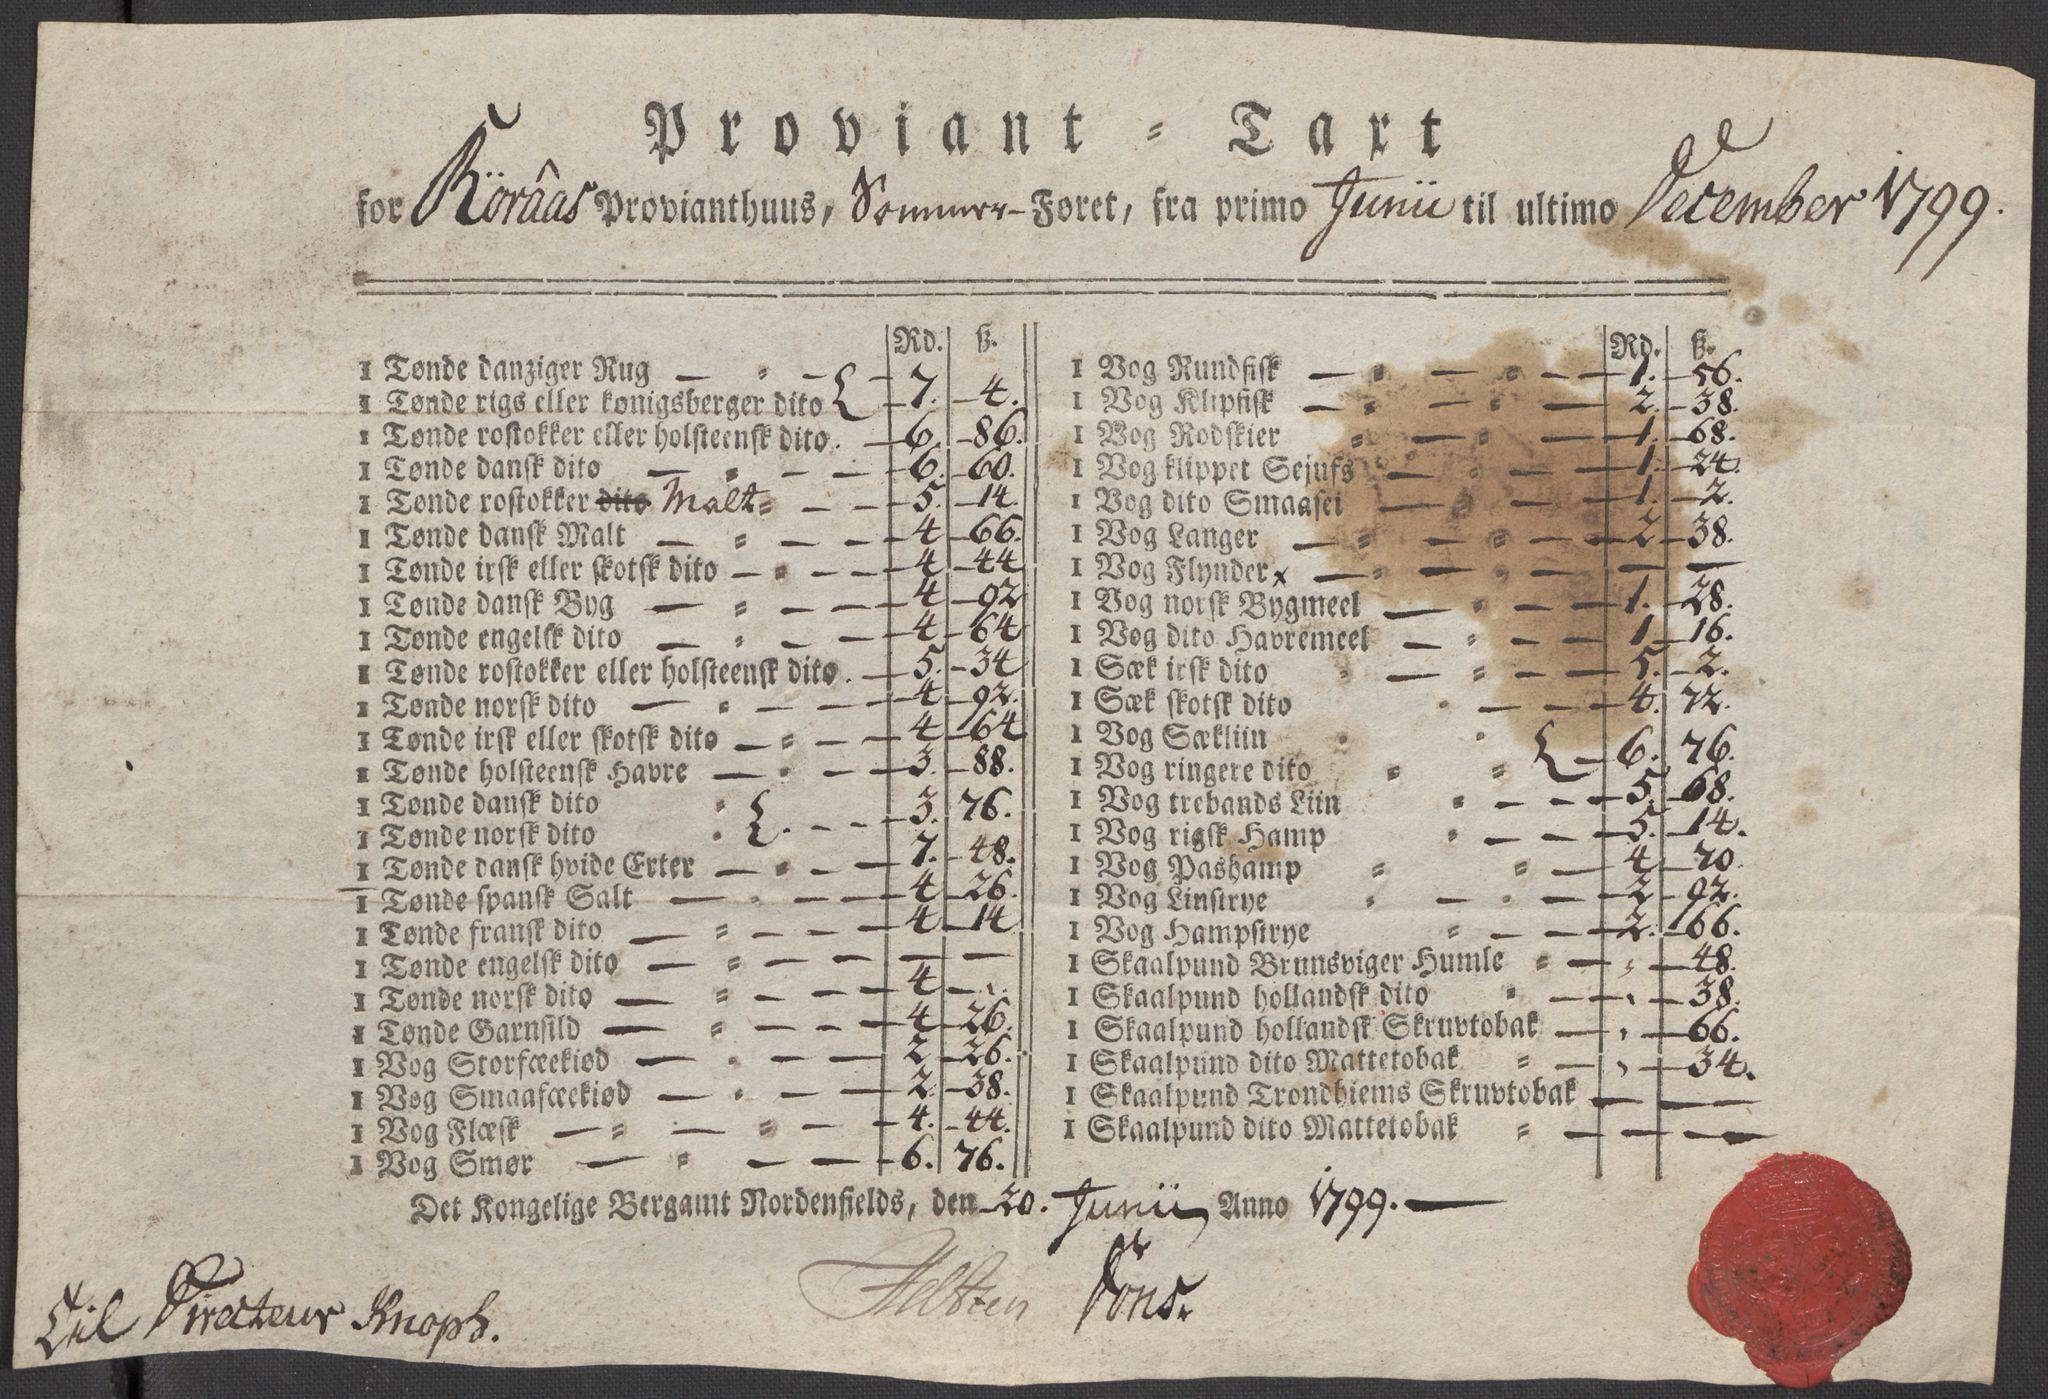 Proviant-Taxt
for Röraas Provianthuus, Sommer-Føret, fra primo Junii til ultimo December 1799.
Rd. ß.
1 Tønde danziger Rug
1 Tønde rigs eller kønigsberger dito 7. 4.
1 Tønde rostokker eller holsteensk dito. 6. 86.
1 Tønde dansk dito 6. 60.
1 Tønde rostokker dito Malt 5. 14.
1 Tønde dansk Malt 4 66.
1 Tønde irsk eller skotsk dito 4 44
1 Tønde dansk Byg 4 92
1 Tønde engelsk dito 4 64
1 Tønde rostokker eller holsteensk dito. 5. 34
1 Tønde norsk dito 4 92.
1 Tønde irsk eller skotsk dito 4 64
1 Tønde holsteensk Havre 3. 88.
1 Tønde dansk dito 3. 76.
1 Tønde norsk dito
1 Tønde dansk hvide Erter 7. 48.
1 Tønde spansk Salt 4 26.
1 Tønde fransk dito 4 14
1 Tønde engelsk dito — —
1 Tønde norsk dito 4 —
1 Tønde Garnsild 4 26.
1 Vog Storfæekiød 2 26.
1 Vog Smaafæekiød 2 38.
1 Vog Flæsk 4. 44.
1 Vog Smør 6. 76.
Rd. ß.
1 Vog Rundfisk 1. 56.
1 Vog Klipfisk 2. 38.
1 Vog Rodskier 1. 68.
1 Vog klippet Sejufs 1. 24.
1 Vog dito Smaasei 1. 2.
1 Vog Langer 2 38.
1 Vog Flynder x — —
1 Vog norsk Bygmeel 1. 28.
1 Vog dito Havremeel 1 16.
1 Sæk irsk dito 5. 2.
1 Sæk skotsk dito 4. 72.
1 Vog Sækliin 6. 76.
1 Vog ringere dito
1 Vog trebands Liin 5. 68.
1 Vog rigsk Hamp 5. 14.
1 Vog Pashamp 4 70.
1 Vog Linstrye 2 92.
1 Vog Hampstrye 2. 66.
1 Skaalpund Brunsviger Humle 48.
1 Skaalpund hollandsk dito 38.
1 Skaalpund hollandsk Skruvtobak 66.
1 Skaalpund dito Mattetobak 34.
1 Skaalpund Trondhiems Skruvtobak — —
1 Skaalpund dito Mattetobak — —
Det Kongelige Bergamt Nordenfields, den 20. Junii Anno 1799.
Til Directeur Knoph.